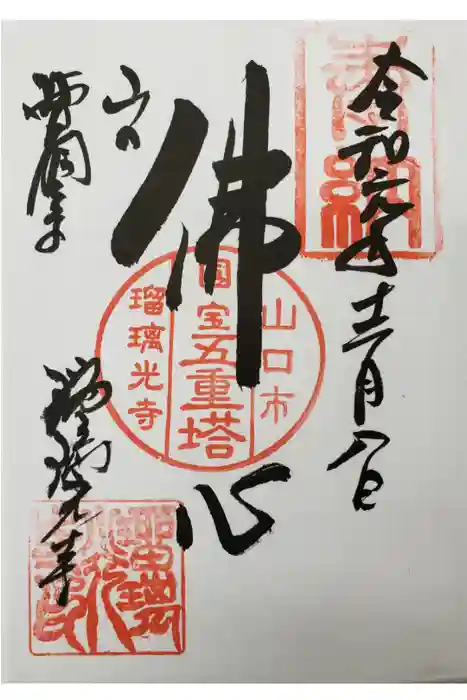 奉納
令和元年十二月八日
佛心
山口市
國宝五重塔
瑠璃光寺
山口
瑠璃光寺